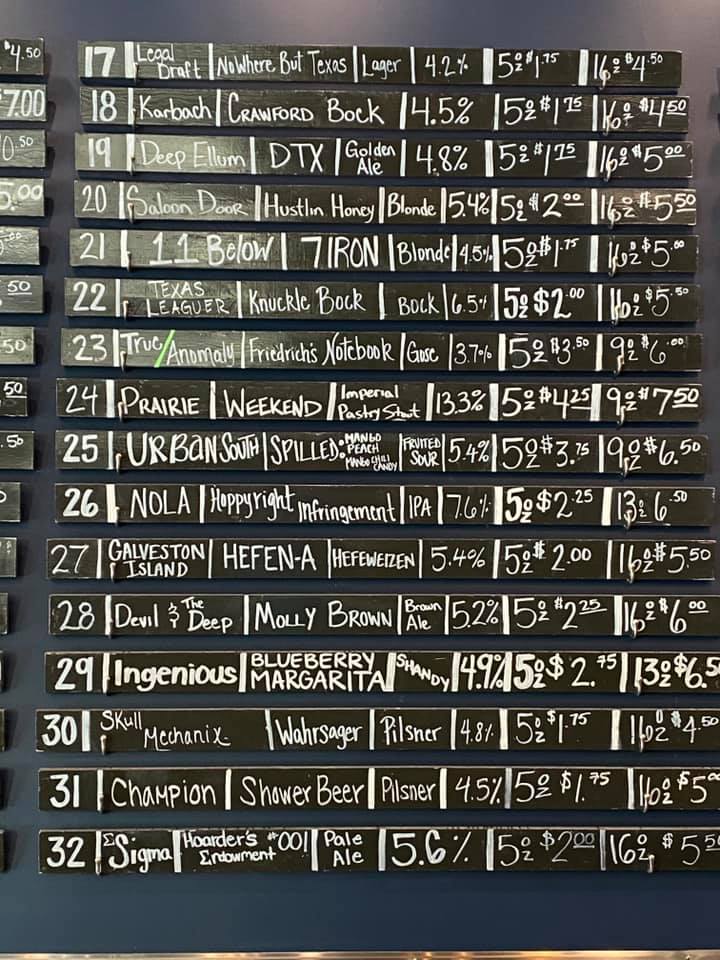 $4.50
17 Legal Draft | NoWhere But Texas | Lager | 4.2% | 5oz $1.75 | 16oz $4.50
7.00
18 | Karbach | CRAWFORD BOCK | 4.5% | 5oz $1.75 | 16oz $4.50
0.50
19 | Deep Ellum | DTX | Golden Ale | 4.8% | 5oz $1.75 | 16oz $5.00
5.00
20 | Saloon Door | Hustlin Honey | Blonde | 5.4% | 5oz $2.00 | 16oz $5.50
21 | 11 Below | 7IRON | Blonde | 4.5% | 5oz $1.75 | 16oz $5.00
50
22 | TEXAS LEAGUER | Knuckle Bock | BOCK | 6.5% | 5oz $2.00 | 16oz $5.50
50
23 | True/Anomaly | Friedrich's Notebook | Gose | 3.7% | 5oz $3.50 | 9oz $6.00
50
24 | PRAIRIE | WEEKEND | Imperial Pastry Stout | 13.3% | 5oz $4.25 | 9oz $7.50
.50
25 | URBAN SOUTH | SPILLED: MANGO PEACH MANGO CHILI CANDY | FRUITED SOUR | 5.4% | 5oz $3.75 | 9oz $6.50
26 | NOLA | Hoppyright Infringement | IPA | 7.6% | 5oz $2.25 | 13oz 6.50
27 | GALVESTON ISLAND | HEFEN-A | HEFEWEIZEN | 5.4% | 5oz $2.00 | 16oz $5.50
28 | Devil & The Deep | MOLLY BROWN | Brown Ale | 5.2% | 5oz $2.25 | 16oz $6.00
29 | Ingenious | BLUEBERRY MARGARITA | SHANDY | 4.9% | 5oz $2.75 | 13oz $6.5
30 | Skull Mechanix | Wahrsager | Pilsner | 4.8% | 5oz $1.75 | 16oz $4.50
31 | Champion | Shower Beer | Pilsner | 4.5% | 5oz $1.75 | 16oz $5.00
32 | Σ Sigma | Hoarder's Endowment #001 | Pale Ale | 5.6% | 5oz $2.00 | 16oz $5.50